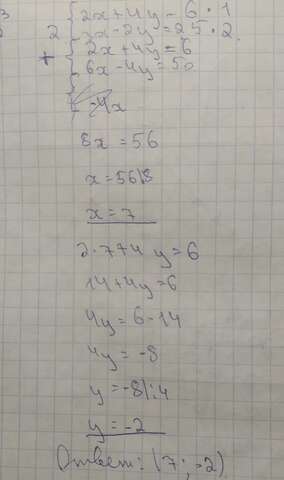 3
2 { 2x+4y=6 · 1
3x-2y=25 · 2.
+ { 2x+4y=6
6x-4y=50
8x=56
x=56/8
x=7
2·7+4y=6
14+4y=6
4y=6-14
4y=-8
y=-8/:4
y=-2
Ответ: (7; -2)